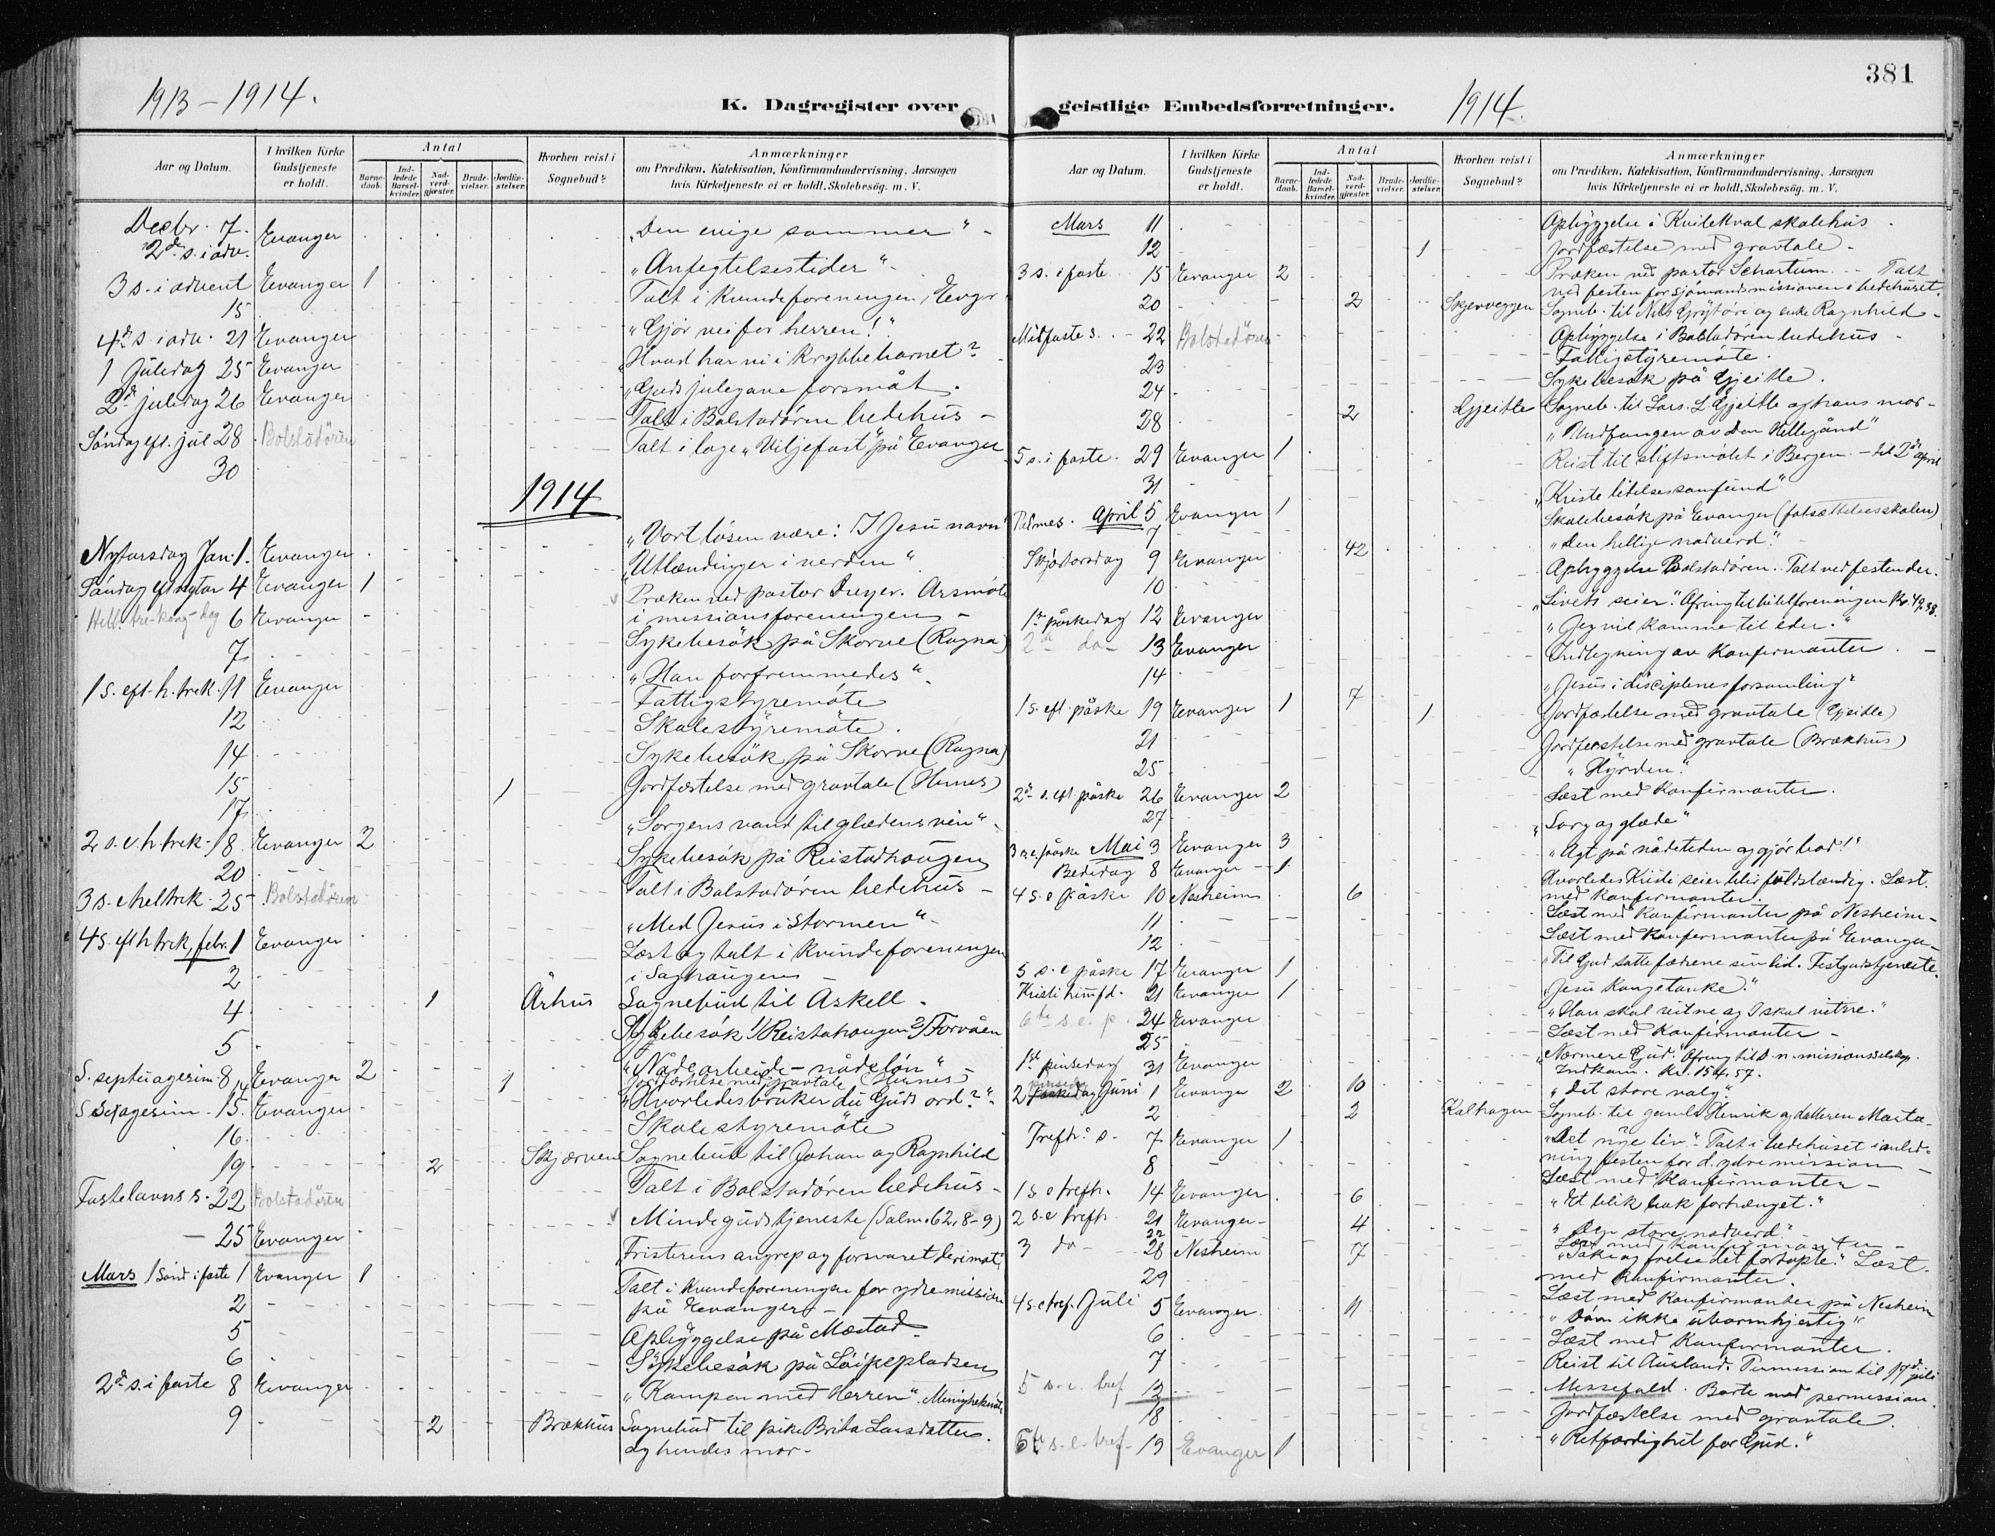 1913 – 1914.
K. Dagregister over
Aar og Datum.
I hvilken Kirke Gudstjeneste er holdt.
Antal
Barnedaab.
Indledede Barselkvinder.
Nadverdgjester.
Brudevielser.
Jordfæstelser.
Hvorhen reist i Sognebud?
Anmærkninger
om Prædiken, Katekisation, Konfirmandundervisning, Aarsagen
hvis Kirketjeneste ei er holdt, Skolebesøg, m. V.
Decbr. 7. 2den s. i adv. Evanger „Den evige sommer“ –
3 s. i advent Evanger 1 „Anfegtelsestider“ –
15 Talt i kvindeforeningen, Evgr
4de s. i adv. 21 Evanger „Gjør vei for herren!“
1 Juledag 25 Evanger „Hvad har vi i krybbebarnet?
2d juledag 26 Evanger „Guds julegave forsmåt.
Søndag eft. jul 28 Bolstadören Talt i Bolstadören bedehus –
30 Talt i loge „Viljefast“ på Evanger
1914
Nytarsdag Jan. 1. Evanger „Vort løsen være: I Jesu navn“
Søndag eft nytar 4 Evanger 1 „Utlændinger i verden“
Hell. tre-kong-dag 6 Evanger Præken ved pastor Dreyer. Arsmöte
i missionsforeningen –
7 Sykebesök på Skorve (Ragna)
1 s. eft. h. trek. 11 Evanger „Han forfremmedes“
12 Fattigstyremöte
14 Skolestyremöte.
15 Sykebesök på Skorve (Ragna)
17 1 Jordfæstelse med gravtale (Hernes)
2 s. e. h trek - 18 Evanger 2 „Sorgens vand til glædens vin“ –
20 Sykebesök på Reistadhaugen
3 s. e hel trek - 25 Bolstadören Talt i Bolstadören bedehus –
4 s. eft h trek, febr. 1 Evanger „Med Jesus i stormen“ –
2 Læst og talt i kvindeforeningen
i Saghaugen –
4 1 Århus Sognebud til Askell.
5 Sykebesök 1/ Reistahaugen 2/ Forvåen
S. septuagesim 8 Evanger 2 „Nådearbeide – nådelön“
1 Jordfæstelse med gravtale (Hernes) –
S Sexagesim - 15. Evanger „Hvorledes bruker du Guds ord?“ –
16 Skolestyremöte
19 2 Skjærven Sognebud til Johan og Ragnhild
Fastelavns s. - 22 Bolstadören Talt i Bolstadören bedehus –
– 25 Evanger Mindegudstjeneste (Salm. 62, 8–9)
Mars 1 Sönd i faste 1 Evanger 1 „Fristerens angrep og forsvaret derimot“
2 Talt i kvindeforeningen for ydre mission
på Evanger –
5 Opbyggelse på Mæstad
6 Sykebesök på
2d s. i faste 8 Evanger „Kampen med Herren“. Menighetsmöte
9 2 Brækhus Sognebud til pike Brita Larsdatter
og hendes mor –
381
geistlige Embedsforretninger.
1914.
Aar og Datum.
I hvilken Kirke Gudstjeneste er holdt.
Antal
Barnedaab.
Indledede Barselkvinder.
Nadverdgjester.
Brudevielser.
Jordfæstelser.
Hvorhen reist i Sognebud?
Anmærkninger
om Prædiken, Katekisation, Konfirmandundervisning, Aarsagen
hvis Kirketjeneste ei er holdt, Skolebesøg, m. V.
Mars 11 Opbyggelse i Kvilekval skolehus –
12 1 Jordfæstelse med gravtale –
3 s. i faste 15 Evanger 2 Præken ved pastor Schartum – Talt
ved festen for sjömandsmissionen i bedehuset.
20 2 Skjerveggen Sogneb. til Nils og enke Ragnhild –
Mitfaste s. – 22 Bolstadören Opbyggelse i Bolstadören bedehus –
23 Fattigstyremöte.
24 Sykebesök på Gjeitle.
28 2 Gjeitle Sogneb. til Lars L Gjeitle og hans mor –
5 s. i faste. 29 Evanger 1 „Undfangen av den Helligånd“
31 Reist til stiftsmötet i Bergen. – til 2d april
Palmes. April 5 Evanger 1 „Kristi lidelsessamfund“
7 Skolebesök på Evanger (fotsættelsesskolen)
Skjærtorsdag 9 Evanger 42 „Den hellige nadverd.“
10 Opbyggelse Bolstadören. Talt ved festen der.
1ste påskedag 12 Evanger „Livets seier“. Ofring til bibelforeningen Kr. 49.38.
2d do – 13 Evanger „Jeg vil komme til eder.“
14 Indtegning av konfirmanter. –
1 s. eft. påske 19 Evanger 1 7 „Jesus i disciplenes forsamling“
21 1 Jordfæstelse med gravtale (Gjeitle)
25 Jordfæstelse med gravtale (Brækhus)
2d s. eft. påske 26 Evanger 2 „Hyrden“.
27 Læst med konfirmanter.
3 s e. påske Mai 3 Evanger 3 „Sorg og glæde“
Bededag 8 Evanger 1 „Agt på nådetiden og gjör bod!“
4 s. e påske 10 Nesheim 6 Hvorledes Kristi seier blir fuldstændig. Læst
med konfirmanter.
11 Læst med konfirmanter på Nesheim –
12 Læst med konfirmanter på Evanger –
5 s. e påske 17 Evanger 1 „Til Gud satte fædrene sin lid. Festgudstjeneste.
Kristi himfd. 21 Evanger 1 „Jesu kongetanke“.
6te s. e. p. 24 Evanger „Han skal vitne og I skal vitne.“
25 Læst med konfirmanter –
1ste pinsedag 31 Evanger „Nærmere Gud.“ Ofring til d. n. missionsselskap.
Indkom. Kr. 154.57.
2 pinsedag Juni 1 Evanger 2 10 „Det store valg“.
2 2 Kalhagen Sogneb. til gamle Henrik og datteren Marta –
Trefh. s. 7 Evanger 1 „Det nye liv“. Talt i bedehuset i anledning
festen for d. ydre mission –
8 Læst med konfirmanter –
1 s e trefh. 14 Evanger 6 „Et blik bak forhænget.“
2 s. e trefh. 21 Evanger – 4 „Den store nadverd“
22 Læst med konfirmanter –
3 do – 28 Nesheim 7 „Söke og frelse det fortapte.“ Læst
med konfirmanter.
29 Læst med konfirmanter på Nesheim
4 s. e tref. Juli 5 Evanger 11 „Döm ikke ubarmhjertig“
6 Læst med konfirmanter.
7 Reist til Permission til 17d juli
5 s. e. tref 12 Messefald. Borte med permission.
18 Jordfæstelse med gravtale.
6te s. e. tref. 19 Evanger 1 „Retfærdighet for Gud.“